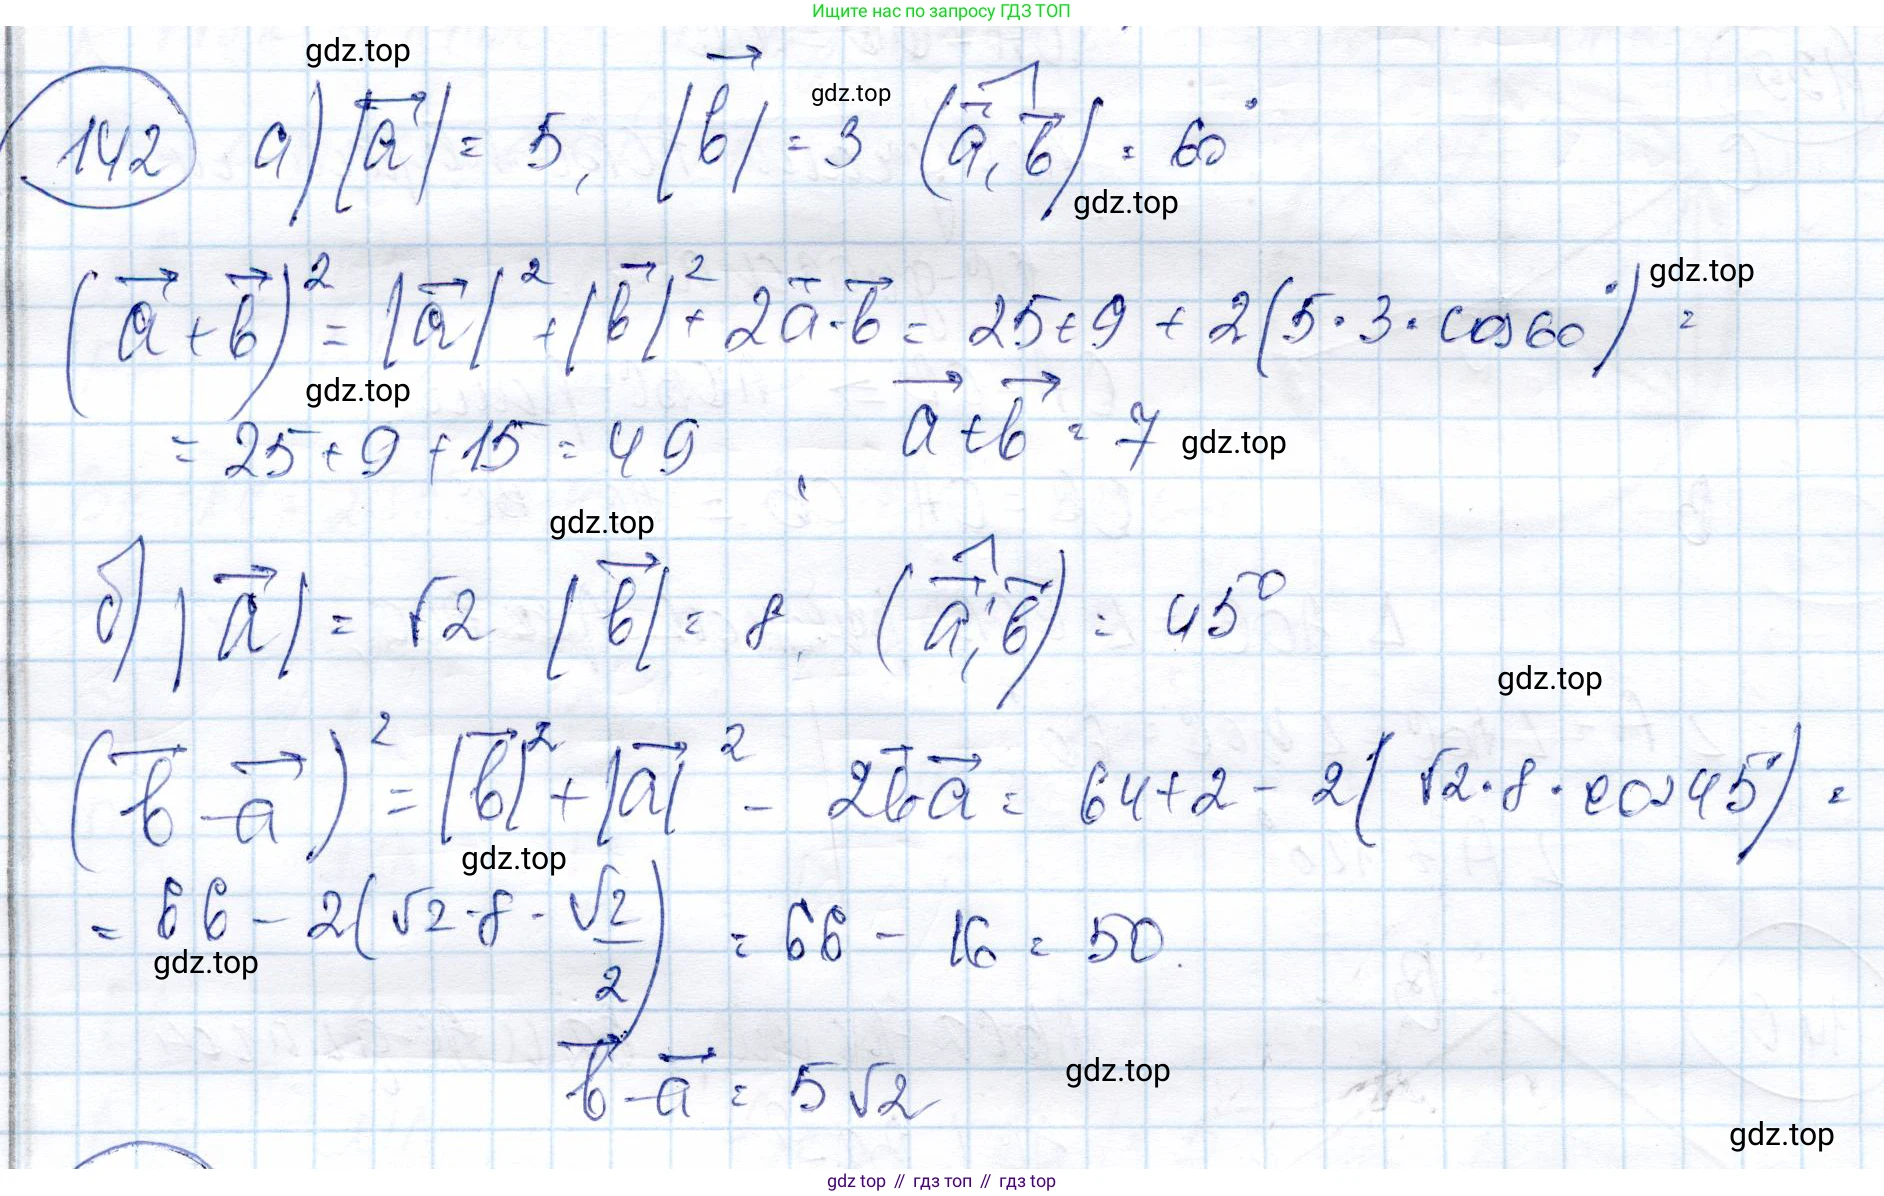 Ищите нас по запросу ГДЗ ТОП
gdz.top
142 а) |a⃗| = 5, |b⃗| = 3 (a⃗, b⃗) = 60°
gdz.top
gdz.top
gdz.top
(a⃗ + b⃗)² = |a⃗|² + |b⃗|² + 2a⃗·b⃗ = 25+9 + 2(5·3·cos60°) =
gdz.top
= 25+9+15 = 49 a⃗+b⃗ = 7
gdz.top
gdz.top
б) |a⃗| = √2 |b⃗| = 8. (a⃗, b⃗) = 45°
gdz.top
(b⃗ - a⃗)² = |b⃗|² + |a⃗|² - 2b⃗a⃗ = 64+2 - 2(√2·8·cos45°) =
gdz.top
= 66 - 2(√2·8·√2/2) = 66 - 16 = 50.
gdz.top
b⃗ - a⃗ = 5√2
gdz.top
gdz.top
gdz top // гдз топ // гдз top